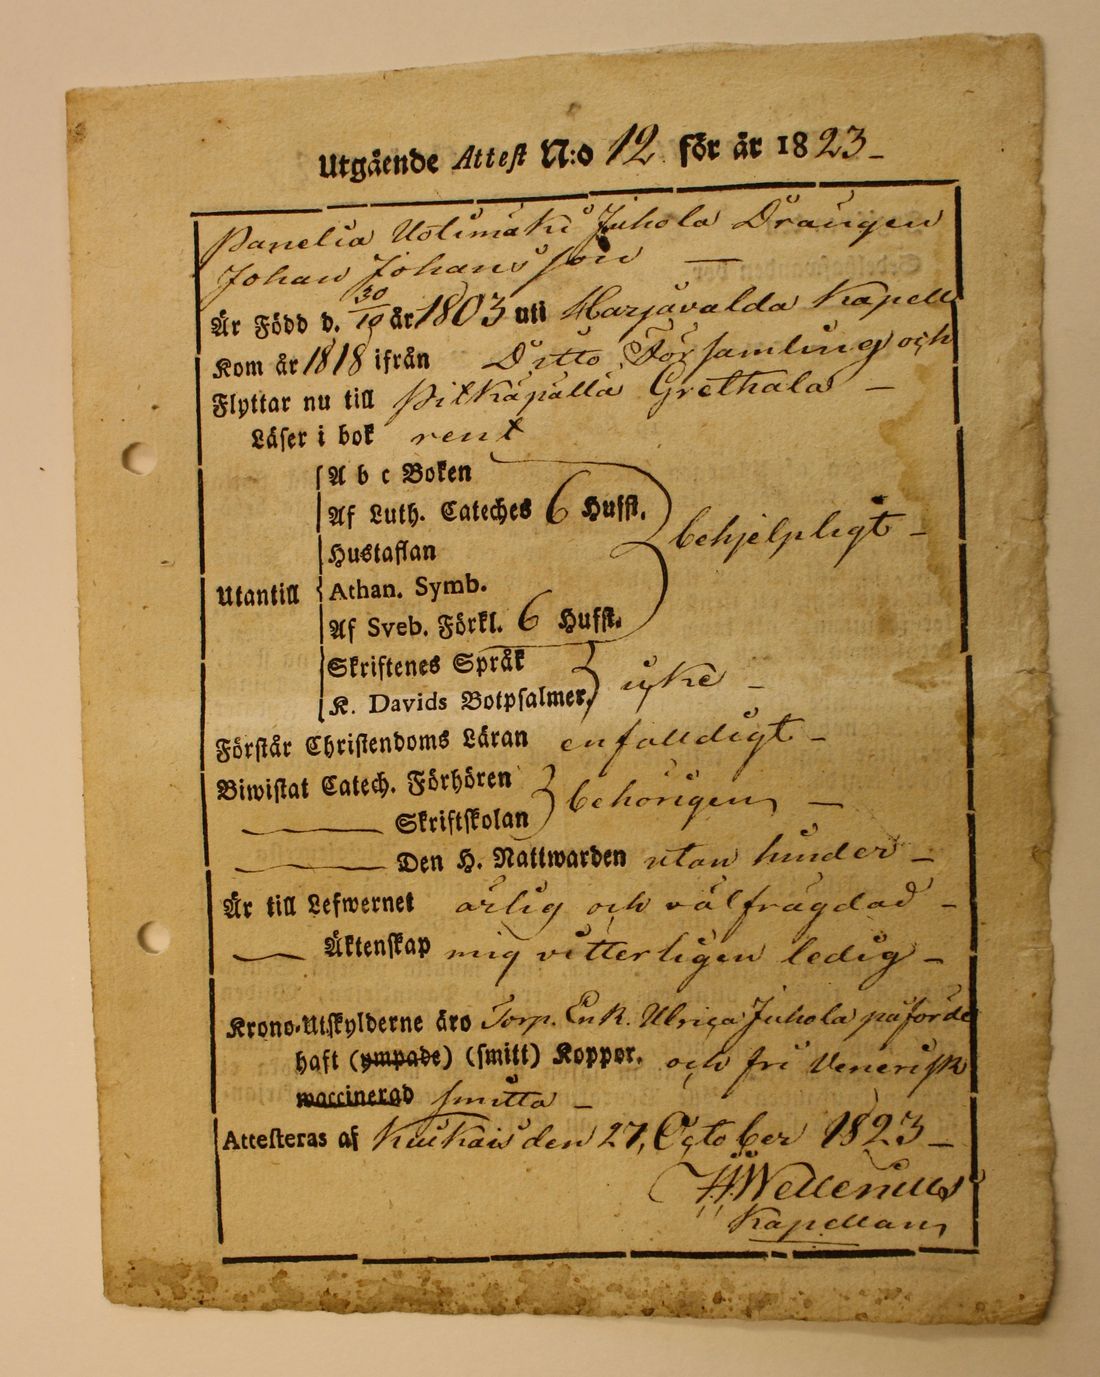 Utgående Attest N:o 12 för år 1823
Panelia Uotimäki Juhola Drängen
Johan Johansson
Är Född d. 30/10 år 1803 uti Harjavalda Kapell
Kom år 1818 ifrån Ditto Församling och
Flyttar nu till Pitkäpallä Grethala
Läser i bok rent
A b c Boken
Af Luth. Cateches 6 Hufst.
behjelpligt
Hustaflan
Utantill Athan. Symb.
Af Sveb. Förkl. 6 Hufst.
Skriftenes Språk
icke
K. Davids Botpsalmer.
Förstår Christendoms Läran enfalldigt
Biwistat Catech. Förhören
behörigen
Skriftskolan
Den H. Nattwarden utan hinder
Är till Lefwernet ärlig och välfrägdad
Äktenskap mig vitterligen ledig
Krono-Utskylderne äro Torp. Enk. Ulrica Juhola påförde
haft (ympade) (smitt) Koppor. och fri Venerisk
waccinerad smitta
Attesteras af Kiukais den 27, October 1823
Kapellan